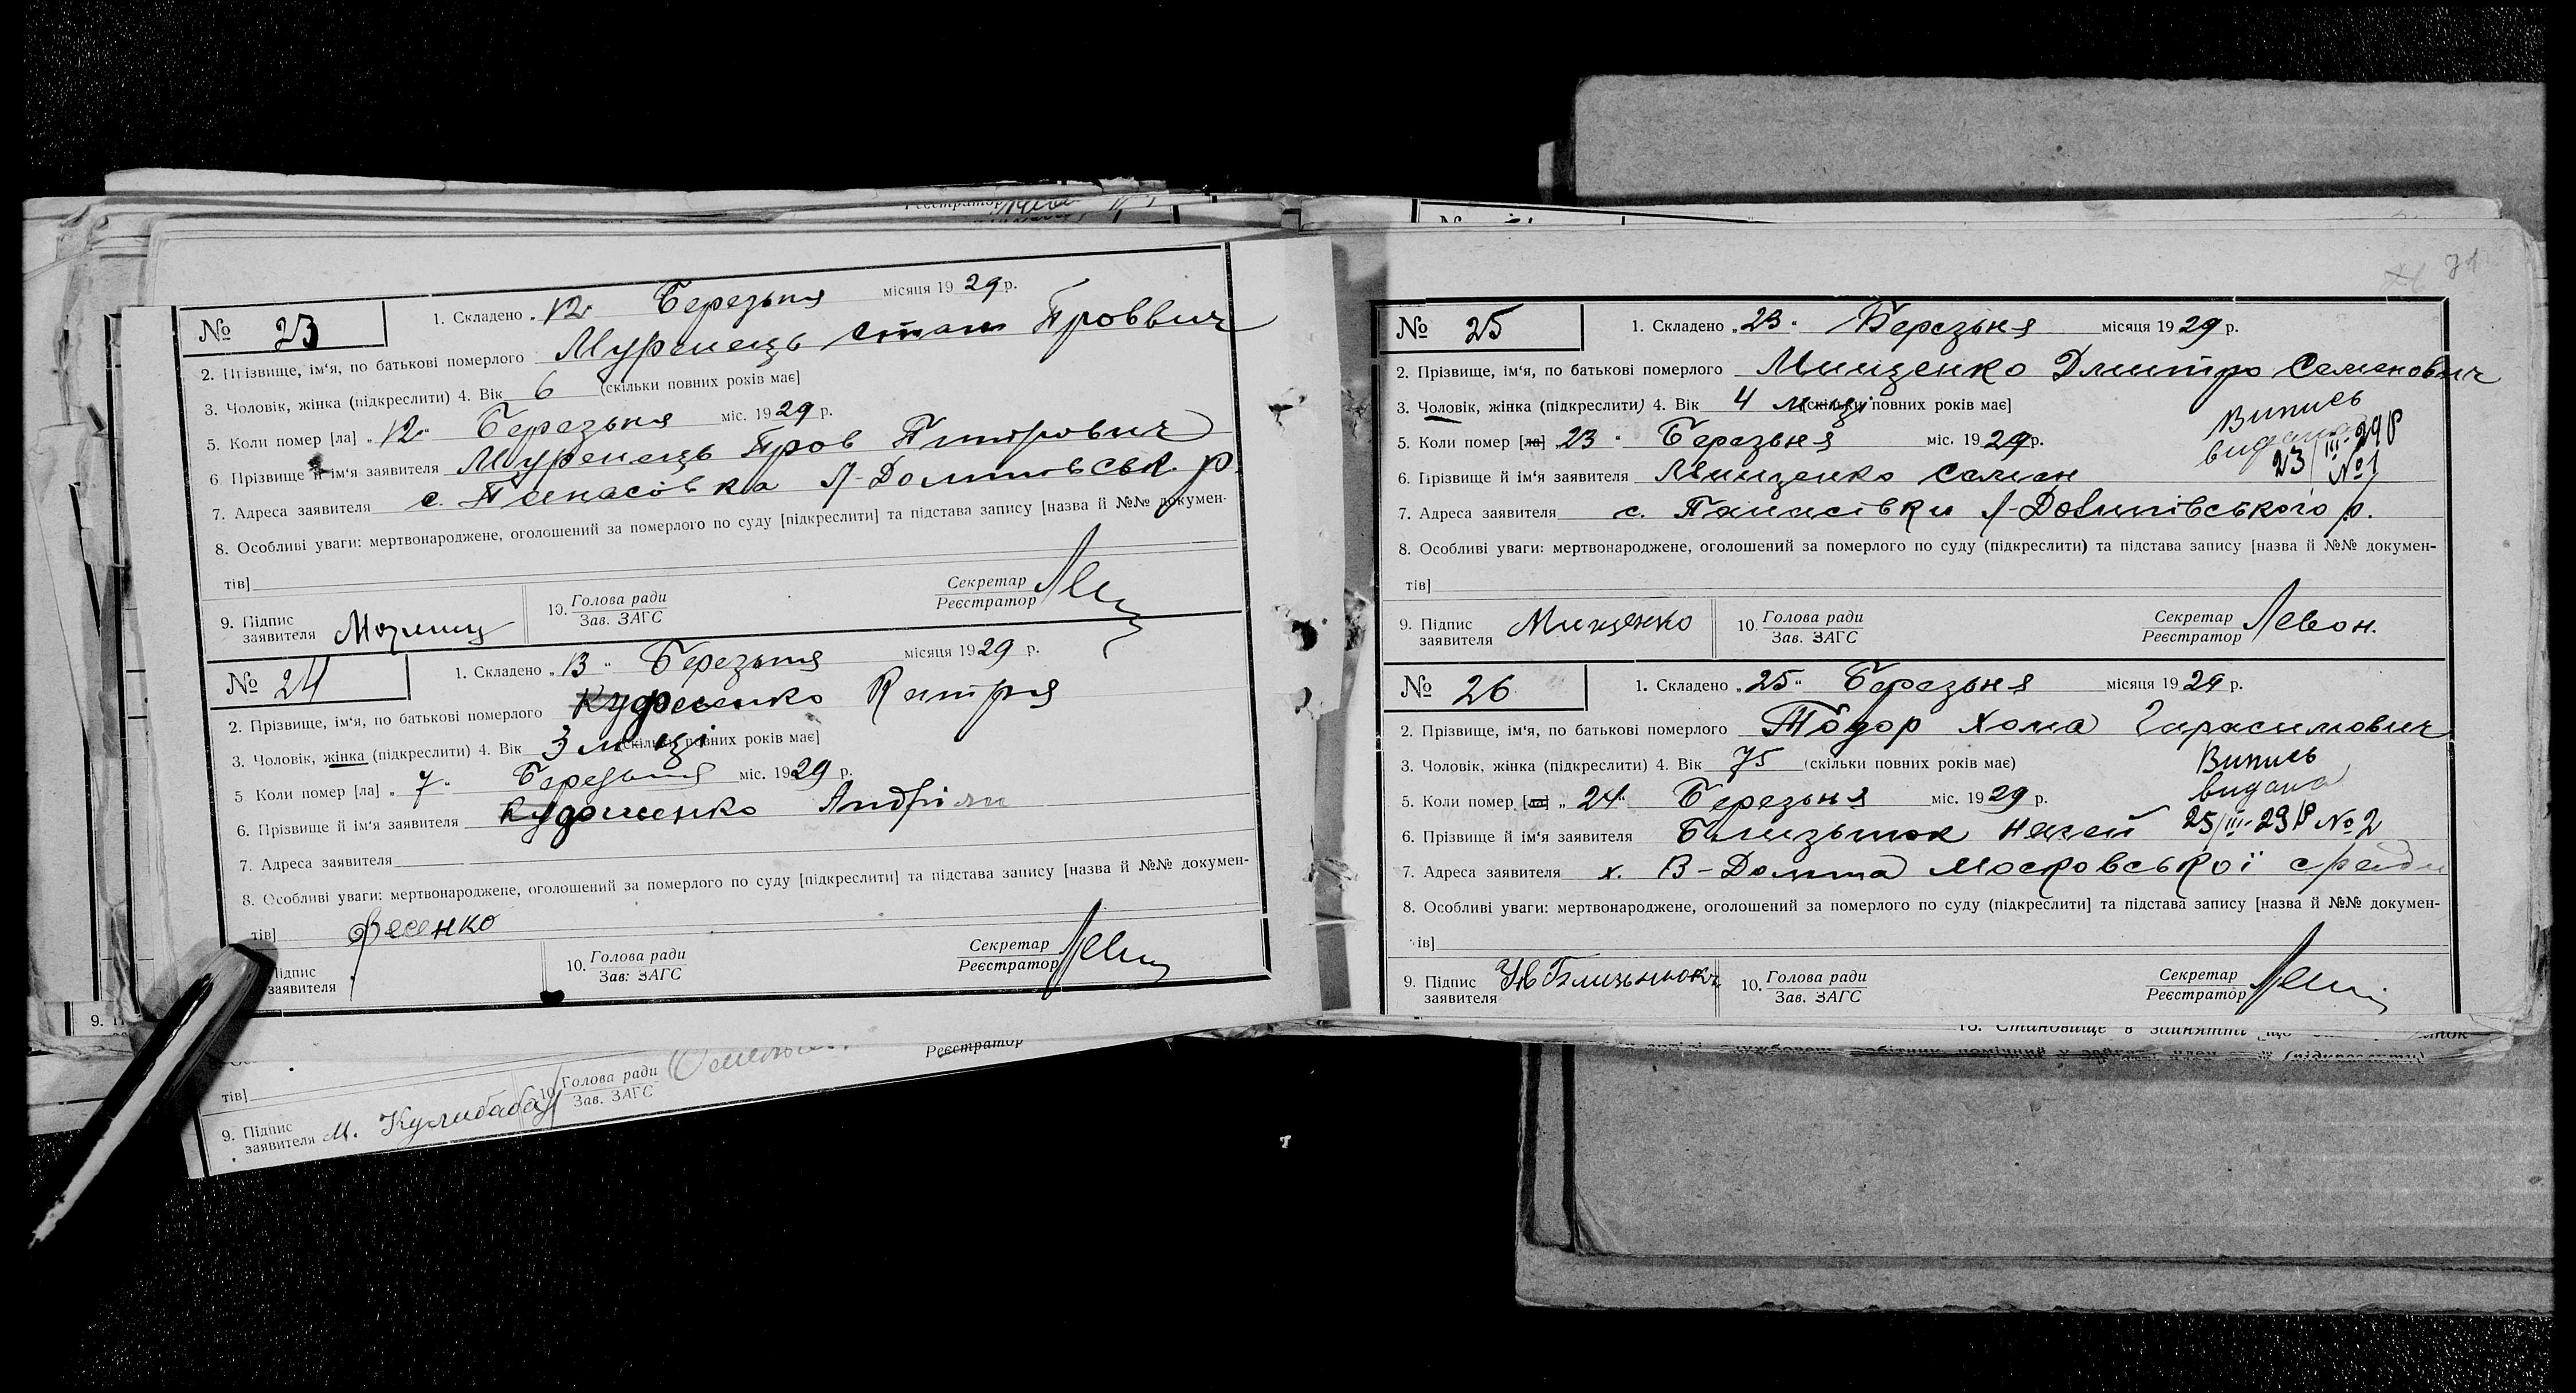 № 23
1. Складено „12“ Березьня місяця 1929 р.
2. Прізвище, ім‘я, по батькові померлого Муренець Степан Провович
3. Чоловік, жінка (підкреслити) 4. Вік 6 (скільки повних років має]
5. Коли помер [ла] „12“ Березьня міс. 1929 р.
6. Прізвище й ім‘я заявителя Муренець Пров
7. Адреса заявителя с. Панасовка Л-Долиновськ. р.
8. Особливі уваги: мертвонароджене, оголошений за померлого по суду [підкреслити] та підстава запису [назва й №№ докумен-
тів]
9. Підпис заявителя
10. Голова ради Зав. ЗАГС
Секретар Реєстратор
№ 24
1. Складено „13“ Березьня місяця 1929 р.
2. Прізвище, ім‘я, по батькові померлого Катря
3. Чоловік, жінка (підкреслити) 4. Вік 3 м-ці (скільки повних років має]
5 Коли помер [ла] „7“ Березьня міс. 1929 р.
6. Прізвище й ім‘я заявителя Андріян
7. Адреса заявителя
8. Особливі уваги: мертвонароджене, оголошений за померлого по суду [підкреслити] та підстава запису [назва й №№ докумен-
тів] Фесенко
Підпис заявителя
10. Голова ради Зав: ЗАГС
Секретар Реєстратор
тів]
9. Підпис заявителя М. Кулибаба
10. Голова ради Зав. ЗАГС
Реєстратор
71
№ 25
1. Складено „23“ Березьня місяця 1929 р.
2. Прізвище, ім‘я, по батькові померлого Мищенко Дмитро Семенович
3. Чоловік, жінка (підкреслити) 4. Вік 4 м-ці (скільки повних років має]
Випись
5. Коли помер [ла] „23“ Березьня міс. 1929 р.
видана 23/III-29 р №1
6. Прізвище й ім‘я заявителя Мищенко Семен
7. Адреса заявителя с. Панасівки Л-Долинівського р.
8. Особливі уваги: мертвонароджене, оголошений за померлого по суду (підкреслити) та підстава запису [назва й №№ докумен-
тів]
9. Підпис заявителя Мищенко
10. Голова ради Зав. ЗАГС
Секретар Реєстратор Левон.
№ 26
1. Складено „25“ Березьня місяця 1929 р.
2. Прізвище, ім‘я, по батькові померлого Тодор Хома Гарасимович
3. Чоловік, жінка (підкреслити) 4. Вік 75 (скільки повних років має)
Випись
5. Коли помер [ла] „24“ Березьня міс. 1929 р.
видана
6. Прізвище й ім‘я заявителя Близьнюк
25/III-29 р №2
7. Адреса заявителя х. В-Долина Московської с/ради
8. Особливі уваги: мертвонароджене, оголошений за померлого по суду (підкреслити] та підстава запису [назва й №№ докумен-
ів]
9. Підпис заявителя Близьнюк
10. Голова ради Зав. ЗАГС
Секретар Реєстратор